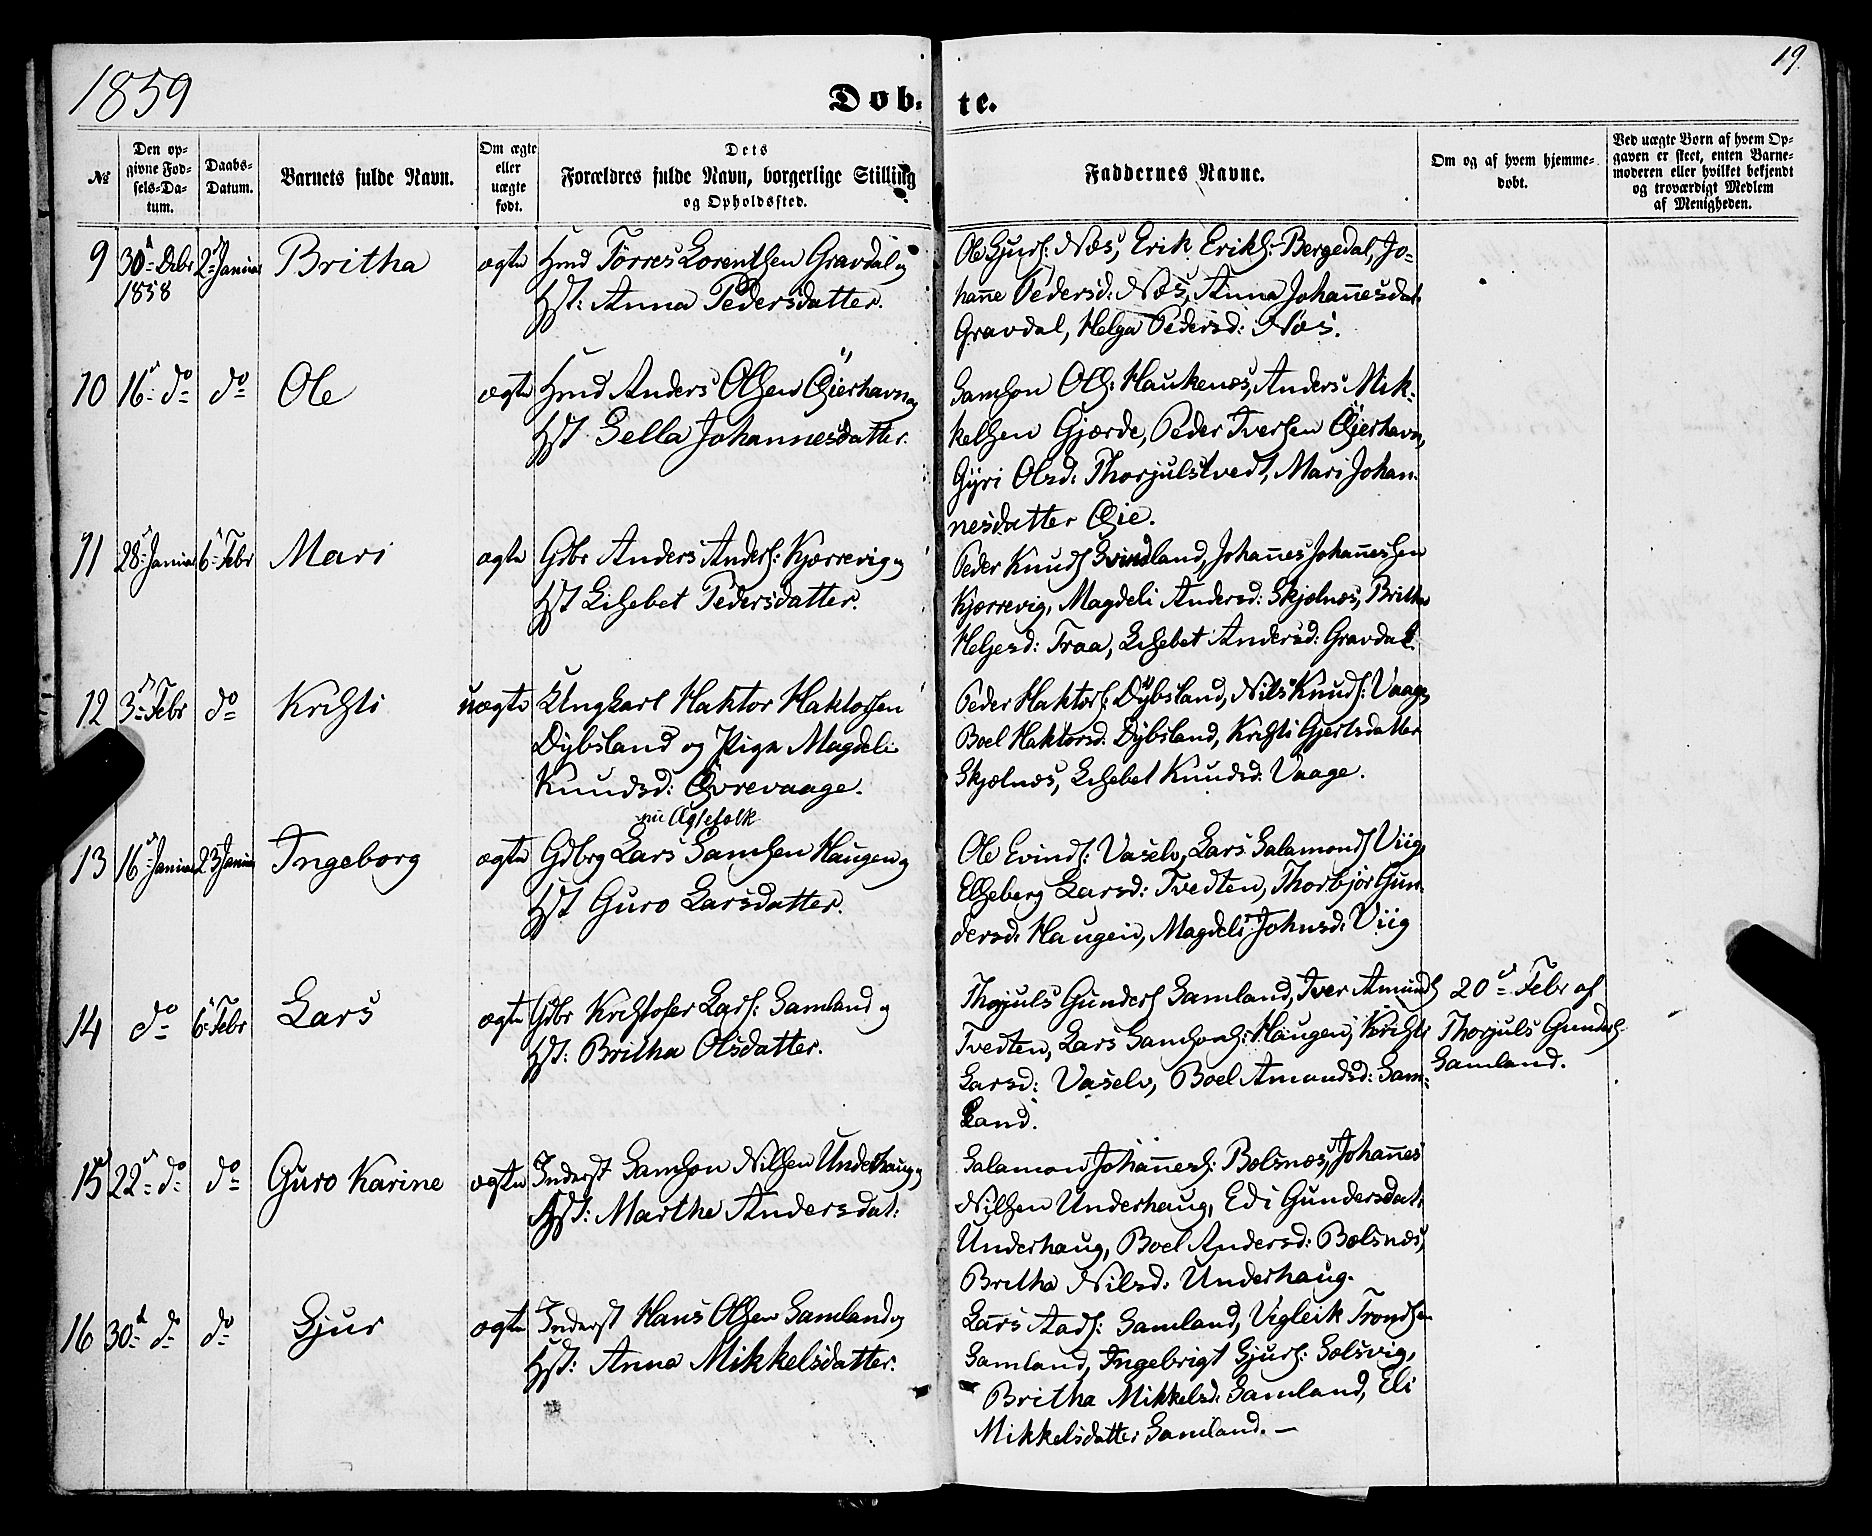 1859
19.
Døb- te.
№
Den op-
givne Fød-
sels-Da-
tum.
Daabs-
Datum.
Barnets fulde Navn.
Om ægte
eller
uægte
født.
Dets
Forældres fulde Navn, borgerlige Stilling
og Opholdssted.
Faddernes Navne.
Om og af hvem hjemme-
døbt.
Ved uægte Børn af hvem Op-
gaven er skeet, enten Barne-
moderen eller hvilket bekjendt
og troværdigt Medlem
af Menigheden.
9 30d Debr 2d Januar Britha ægte Hmd Torres Lorentsen Gravdal og
1858 Hst: Anna Pedersdatter.
Ole Sjurs: Næs, Erik Eriks: Bergedal, Jo-
hañe Pedersd: Næs, Anna Johañesdat.
Gravdal, Helga Pedersd: Næs.
10 16d do do Ole ægte Hmd Anders Olsen Øierhavn og
Hst Sella Johannesdatter.
Samson Ols: Haukenæs, Anders Mik-
kelsen Gjærde, Peder Iversen Øierhavn,
Gyri Olsd: Thorjulstvedt, Mari Johan-
nesdatter Øie.
11 28d Januar 6d Febr Mari ægte Gdbr Anders Anders: Kjærrevig og
Hst Lisebet Pedersdatter.
Peder Knuds Svindland, Johañes Johañessen
Kjærrevig, Magdeli Andersd: Skjelnæs, Britha
Heljesd: Traa, Lisebet Andersd: Gravdal.
12 3d Febr do Kristi uægte Ungkarl Haktor Haktorsen
Dybsland og Pige Magdeli
Knudsd: Øvrevaage.
nu Ægtefolk
Peder Haktors: Dybsland, Nils Knuds: Vaage,
Boel Haktorsd. Dybsland, Kristi Gjertsdatter
Skjelnæs, Lisebet Knudsd. Vaage.
13 16d Januar 23d Januar Ingeborg ægte Gdbrg Lars Samsen Haugen og
Hst Guro Larsdatter.
Ole Evinds: Vaselv, Lars Salamonds Viig,
Elseberg Larsd: Tvedten, Thorbjør Gun-
dersd. Haugen, Magdeli Johnsd. Viig
14 do 6d Febr Lars ægte Gdbr Kristofer Lars: Samland og
Hst: Britha Olsdatter.
Thorjuls Gunders Samland, Iver Amunds
Tvedten, Lars Samsons: Haugen, Kristi
Larsd: Vaselv, Boel Amundsd: Sam-
land.
20d Febr af
Thorjuls Gunders
Samland.
15 22d do do Guro Karine ægte Inderst Samson Nilsen Underhaug og
Hst: Marthe Andersdat:
Salamon Johañes: Bolsnæs, Johañes
Nilsen Underhaug, Edi Gundersdat:
Underhaug, Boel Andersd: Bolsnæs,
Britha Nilsd: Underhaug.
16 30d do do Sjur ægte Inderst Hans Olsen Samland og
Hst: Anna Mikkelsdatter.
Lars Aads: Samland, Vigleik Trondsen
Samland, Ingebrigt Sjurs: Solsvig,
Britha Mikkelsd: Samland, Eli
Mikkelsdatter Samland. —